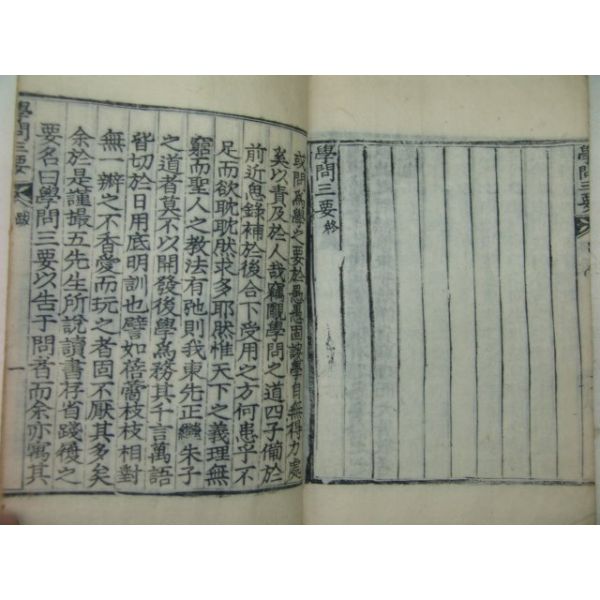 學問三要
學問三要終
或問爲學之要於愚愚固誤學自無得力處
奚以責及於人哉竊覵學問之道四子備於
前近思錄補於後合下受用之方何患乎不
足而欲耽耽然求多耶然惟天下之義理無
窮而聖人之教法有弛則我東先正繼朱子
之道者莫不以開發後學爲務其千言萬語
皆切於日用底明訓也譬如蓓蕾枝枝相對
無一瓣之不香愛而玩之者固不厭其多矣
余於是謹撮五先生所說讀書存省踐履之
要名曰學問三要以告于問者而余亦寓其
學問三要 跋 一